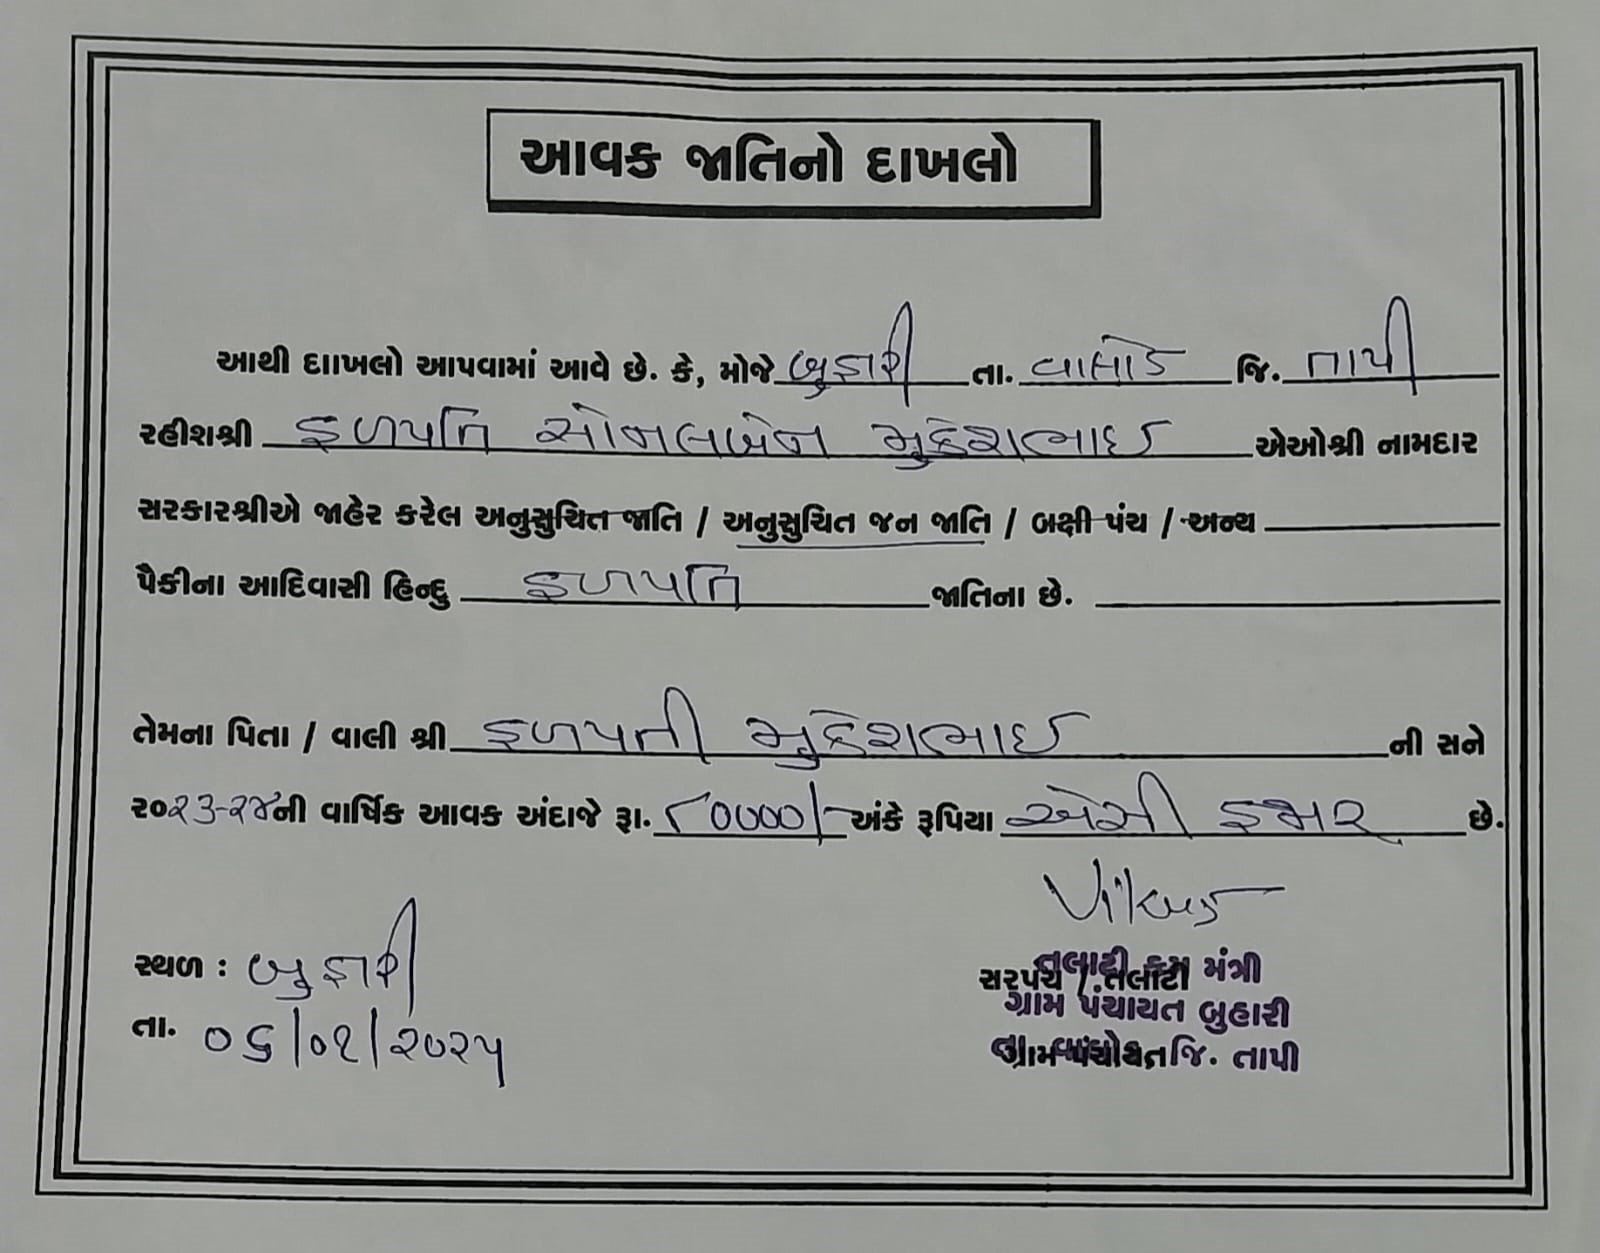 આવક જાતિનો દાખલો
આથી દાાખલો આપવામાં આવે છે. કે, મોજે બુહારી તા. વાલોડ જિ. તાપી
રહીશશ્રી હળપતિ સોનલબેન મુકેશભાઇ એઓશ્રી નામદાર
સરકારશ્રીએ જાહેર કરેલ અનુસુચિત જાતિ / અનુસુચિત જન જાતિ / બક્ષી પંચ / અન્ય
પૈકીના આદિવાસી હિન્દુ હળપતિ જાતિના છે.
તેમના પિતા / વાલી શ્રી હળપતી મુકેશભાઇ ની સને
૨૦૨૩-૨૪ની વાર્ષિક આવક અંદાજે રૂા. ૮૦૦૦૦/- અંકે રૂપિયા એંસી હજાર છે.
સ્થળ : બુહારી
તા. ૦૬/૦૧/૨૦૨૫
તલાટી કમ મંત્રી
સરપંચ / તલાટી
ગ્રામ પંચાયત બુહારી
ગ્રામ પંચાયત
જિ. તાપી